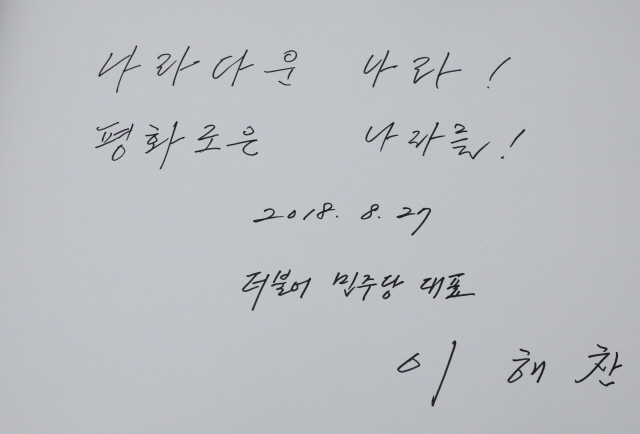 나라다운 나라!
평화로은 나라를!
2018. 8. 27
더불어 민주당 대표
이 해 찬